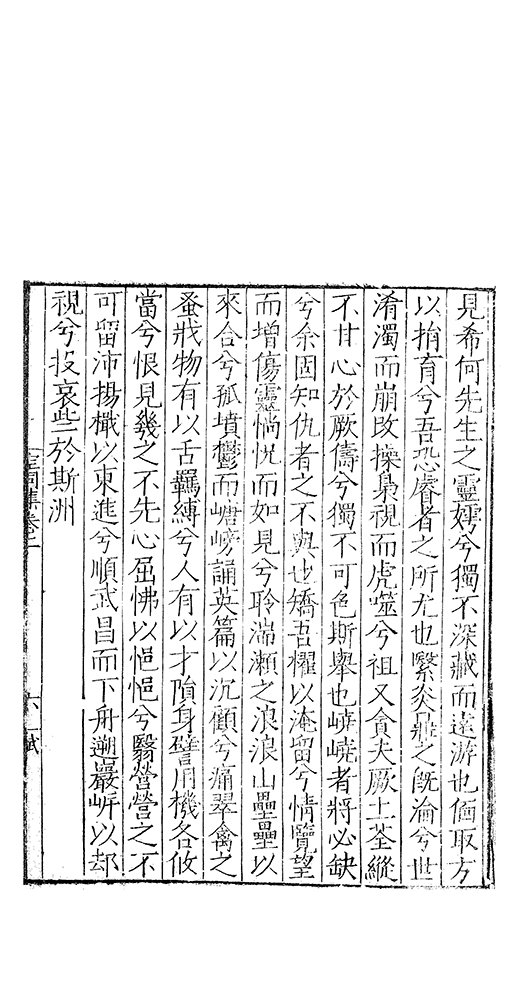 見希何先生之靈嫮兮獨不深藏而遠游也佪取方
以掯育兮吾恐睿者之所尤也繄炎鼎之旣淪兮世
淆濁而崩攺操梟視而虎噬兮祖又貪夫厥土荃縱
不甘心於厥儔兮獨不可色斯舉也嶢嶢者將必缺
兮余固知仇者之不與也矯吾櫂以淹留兮情覽望
而增傷靈惝怳而如見兮聆湍瀨之浪浪山壘壘以
來合兮孤墳鬱而嵣㟐誦英篇以沉顧兮痛翠禽之
蚤戕物有以舌羈縛兮人有以才隕身譬用機各攸
當兮恨見幾之不先心屈怫以悒悒兮翳營營之不
可留沛揚檝以東進兮順武昌而下舟遡巖㟁以却
視兮投哀些於斯洲
空同集卷一
六
賦